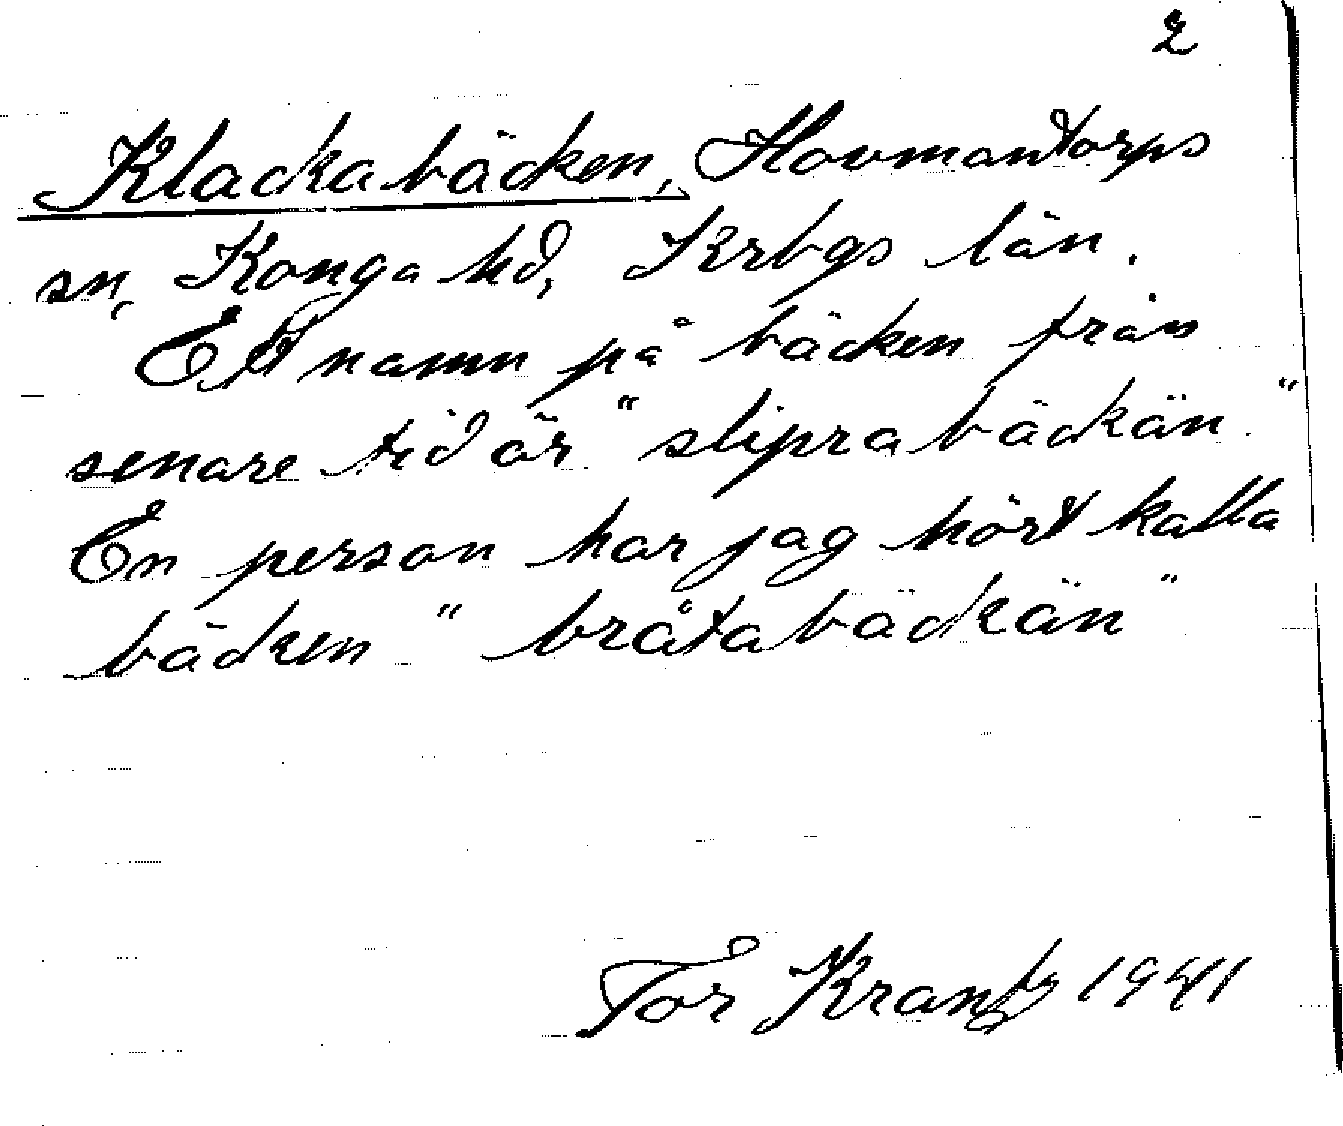 2
Klackabäcken, Hovmantorps
sn, Konga hd, Krbgs län.
Ett namn på bäcken från
senare tid är "sliprabäckän"
En person har jag hört kalla
bäcken "bråtabäckän"
Tor Krantz 1941